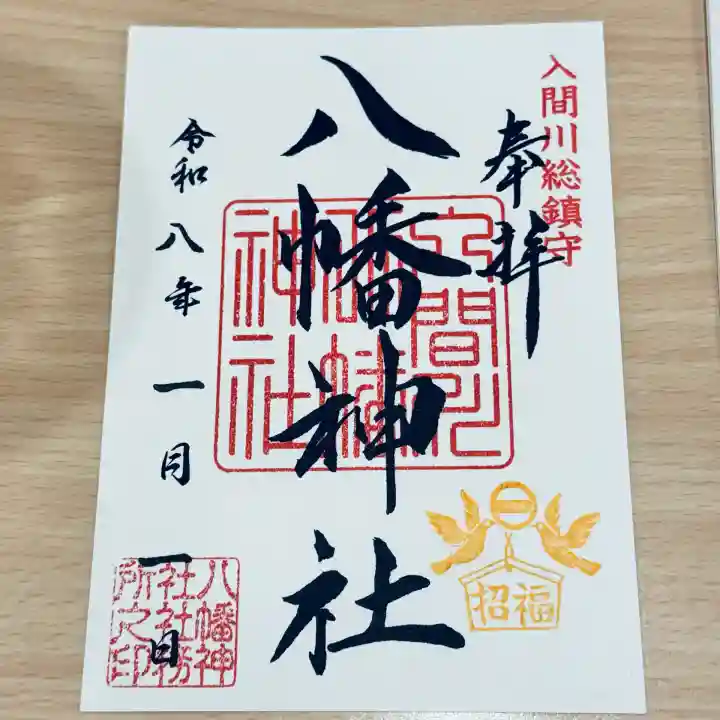 入間川総鎮守
奉拝
八幡神社
入間川
八幡
神社
令和八年 一月 一日
招福
八幡神
社社務
所之印